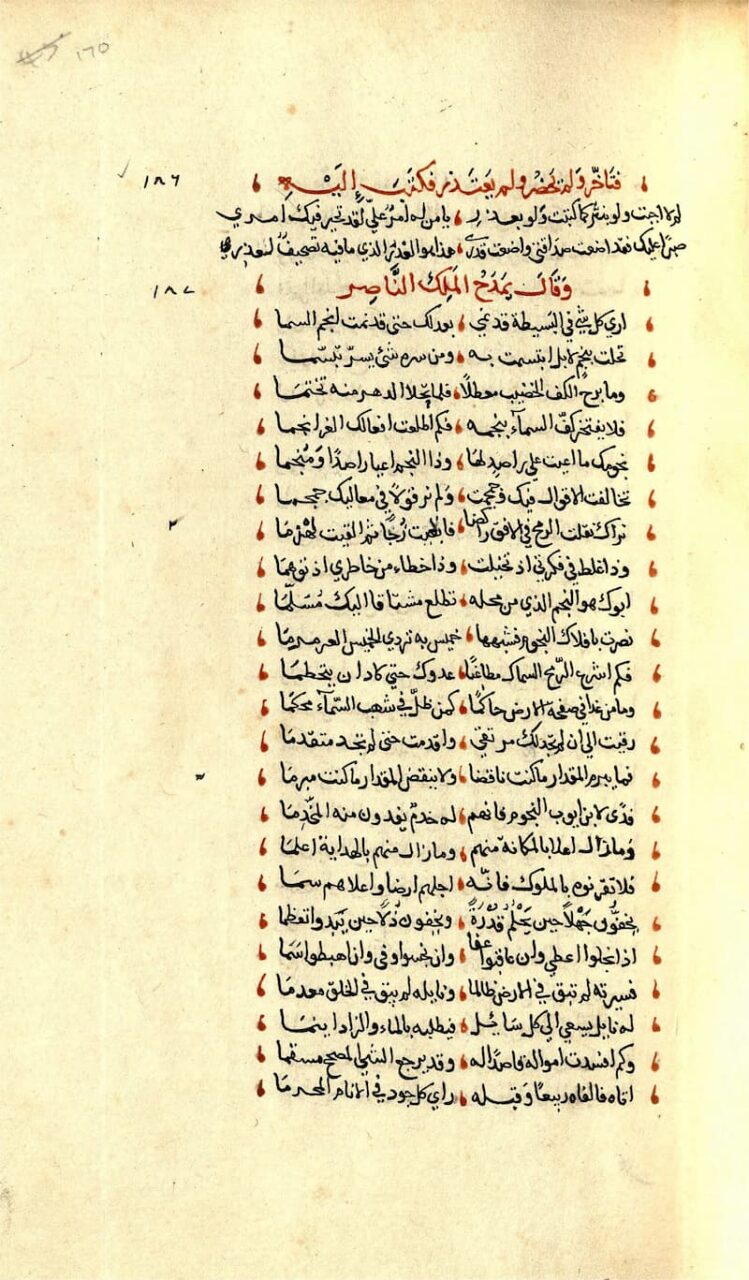 ١٦٥
١٨٦
فتاخّر ولم يحضر ولم يعتذر فكتب إليه
لم لا اجبت ولو بنثر كما كتبت ولو بعذر يا من له امرٌ عليّ لقد تحير فيك امري
صبرا عليك فقد اضعت صداقتي واضعت قدري هذا هو الغدر الذي ما فيه تصحيفٌ لعذري
١٨٧
وقال يمدح الملك الناصر
اري كل شيٍ في البسيطة قد نمي بعدلك حتى قد نمت انجم السما
تحلت بنجم لا بل ابتسمت به ومن سره شئ يسرّ تبسّما
وما برح الكف الخضيب معطلاً فلما تحلا الدهر منه تختما
فلا يفتخر كفّ السماء بنجمه فكم اطلعت افعالك الغر انجما
نجومك ما اعيت علي راصدٍ لها وذا النجم اعيا راصدًا ومنجما
تخالفت الاقوال فيك وجمجمت ولم نر قولاً في معاليك جمجما
نراك نقلت الرمح في الافق راكضا فابقيت زُجًا ثم القيت لهزما
وذا غلط في فكرتي اذ تخيلت وذا خطاء من خاطري اذ توهما
ابوك هو النجم الذي من محله تطلع مشتاقا اليك مُسَلّما
نصرت بافلاك النجوم فشهبها خميس به تردي الخميس العرمرما
فكم اشرع الرّمح السماك مطاعنًا عدوك حتي كاد ان يتحطما
وما من غدا في صفحة الارض حاكمًا كمن ظلّ في شهب السّماء محكما
رقيت الي ان لم تجد لك مرتقي واقدمت حتى لم تجد متقدما
فما يبرم المقدار ما كنت ناقضا ولا ينقض المقدار ما كنت مبرما
فدًى لابن ايوب النجوم فانهم له خدمٌ يفدون منه المخدما
وما زال اعلا بالمكانة منهم وما زال منهم بالهداية اعلما
فلا تقرنوه بالملوك فانّه اجلهم ارضا واعلاهم سما
يخفّون جهلاً حين يحلم قدرةً ويخفون ذلاً حين يبدو تعظما
اذا بخلوا اعطي وان عاقبوا عفا وان نجسوا وفى وان هبطوا سما
فسيرته لم تبق في الارض ظالما ونايله لم يبق في الخلق معدما
له نايل يسعي الي كل سايل فيطلبه بالماء والزاد اينما
وكم افسدت امواله قاصدا له وقد يرجع الشي المصح مسقما
اتاه فالفاه ربيعًا وقبله راي كل جود في الانام المحرما